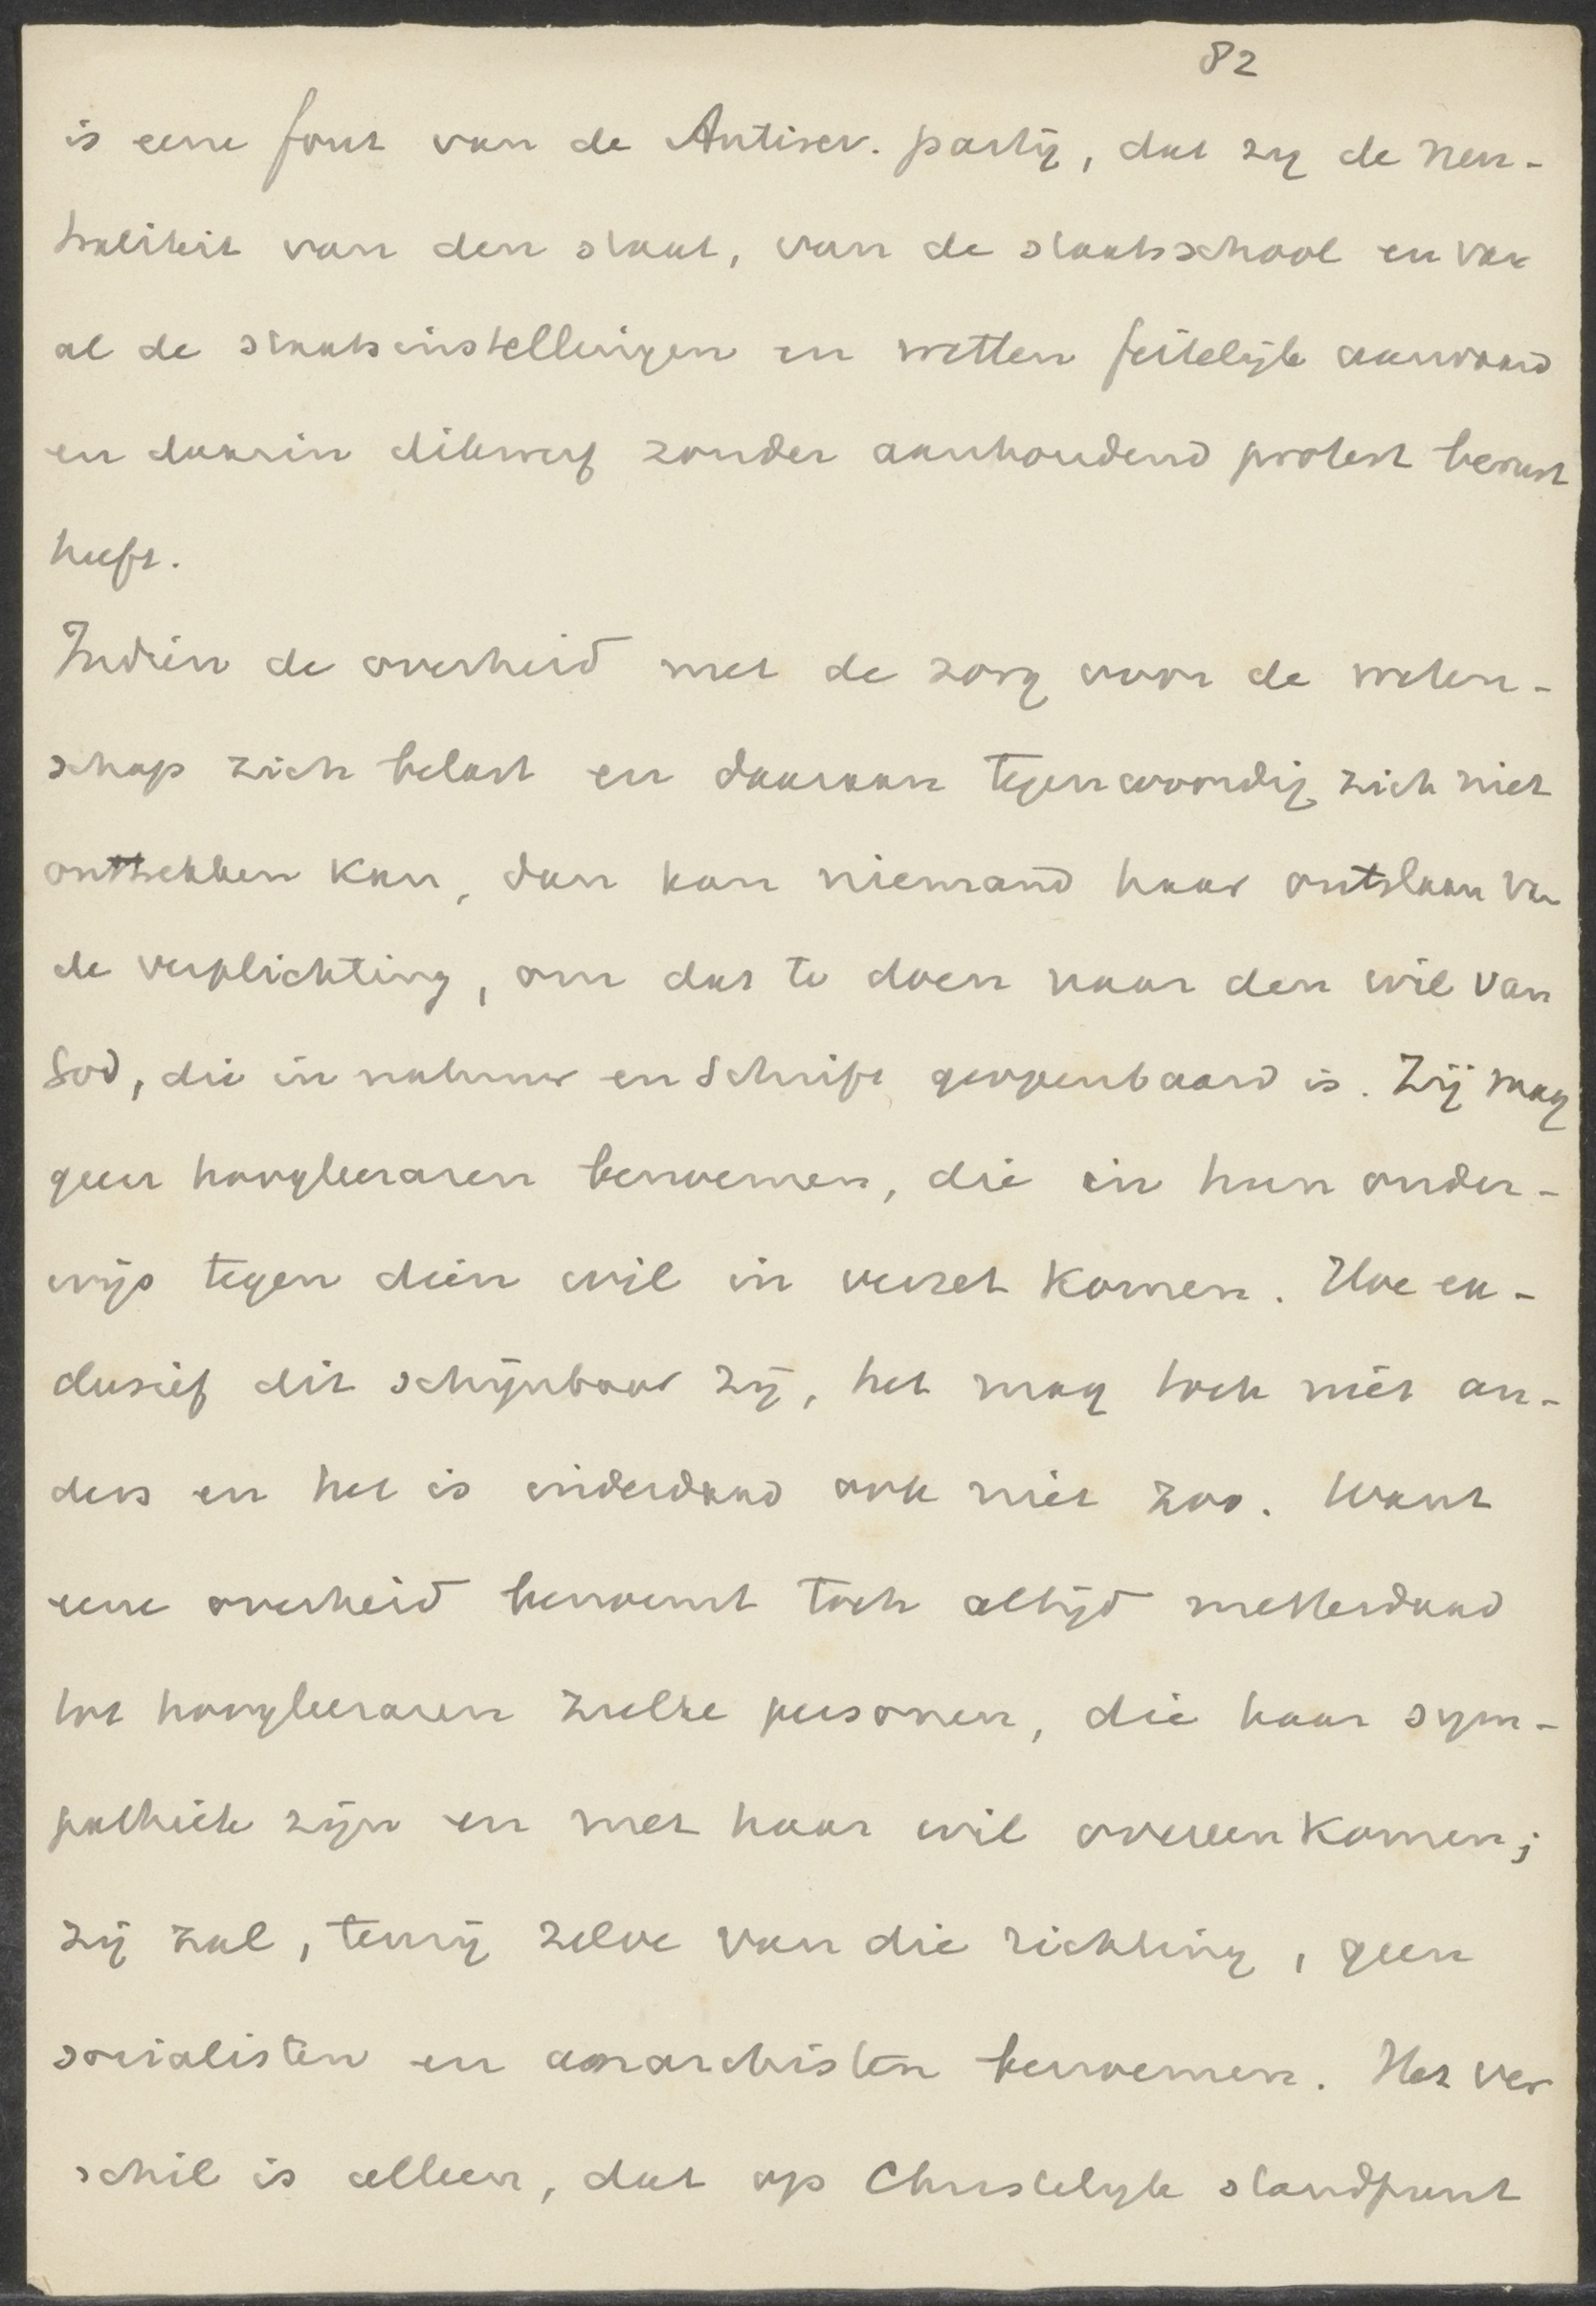 82
is eene fout van de Antirev. partij, dat zij de neu-
traliteit van den staat, van de staatsschool en van
al de staatsinstellingen en wetten feitelijk aanvaard
en daarin dikwerf zonder aanhoudend protest berust
heeft.
Indien de overheid met de zorg voor de weten-
schap zich belast en daaraan tegenwoordig zich niet
onttrekken kan, dan kan niemand haar ontslaan van
de verplichting, om dat te doen naar den wil van
God, die in natuur en Schrift geopenbaard is. Zij mag
geen hoogleeraren benoemen, die in hun onder-
wijs tegen dien wil in verzet komen. Hoe ex-
clusief dit schijnbaar zij, het mag toch niet an-
ders en het is inderdaad ook niet zoo. Want
eene overheid benoemt toch altijd metterdaad
tot hoogleeraren zulke personen, die haar sym-
pathiek zijn en met haar wil overeenkomen;
zij zal, tenzij zelve van die richting, geen
socialisten en anarchisten benoemen. Het ver
schil is alleen, dat op Christelijk standpunt